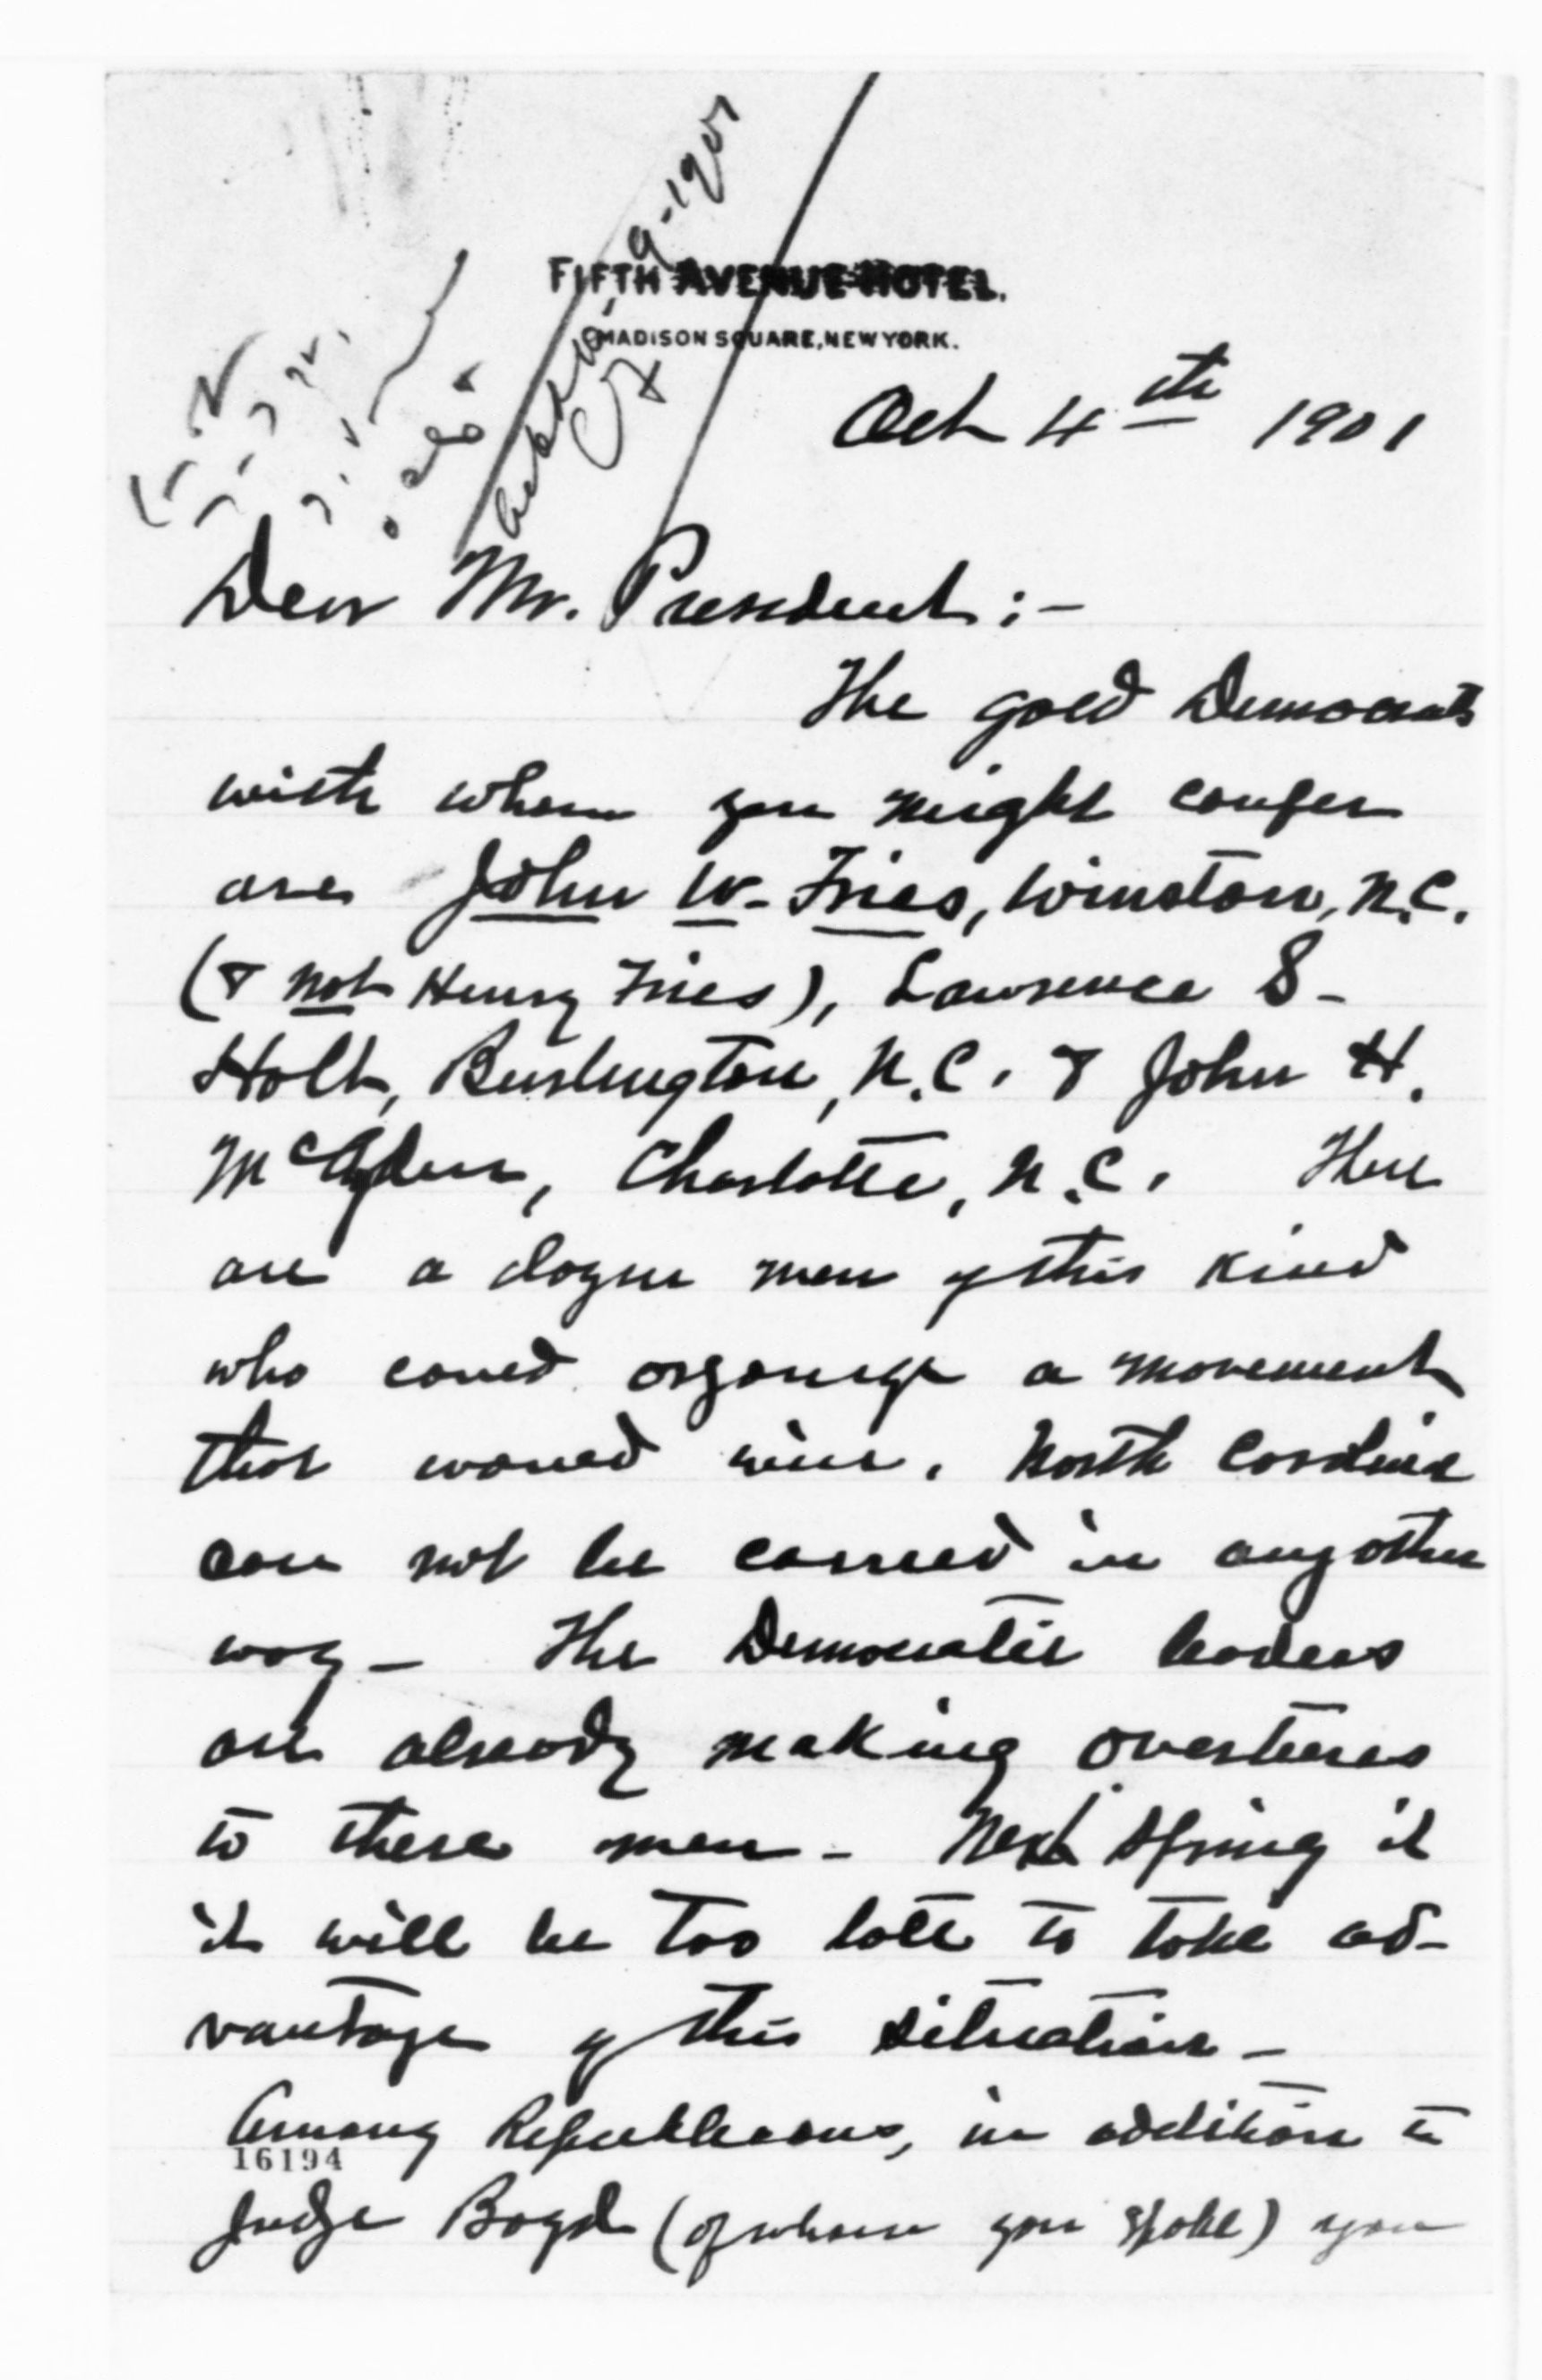 FIFTH AVENUE HOTEL.
MADISON SQUARE, NEW YORK.
Oct 4th 1901
Dear Mr. President:-
The gold Democrats
with whom you might confer
are John W. Fries, Winston, N.C.
(& not Henry Fries), Lawrence S.
Holt, Burlington, N.C. & John H.
McAden, Charlotte, N.C. There
are a dozen men of this kind
who could organize a movement
that would win. North Carolina
can not be carried in any other
way - The Democratic leaders
are already making overtures
to these men - Next spring it
it will be too late to take ad-
vantage of this situation -
Among Republicans, in addition to
16194
Judge Boyd (of whom you spoke) you